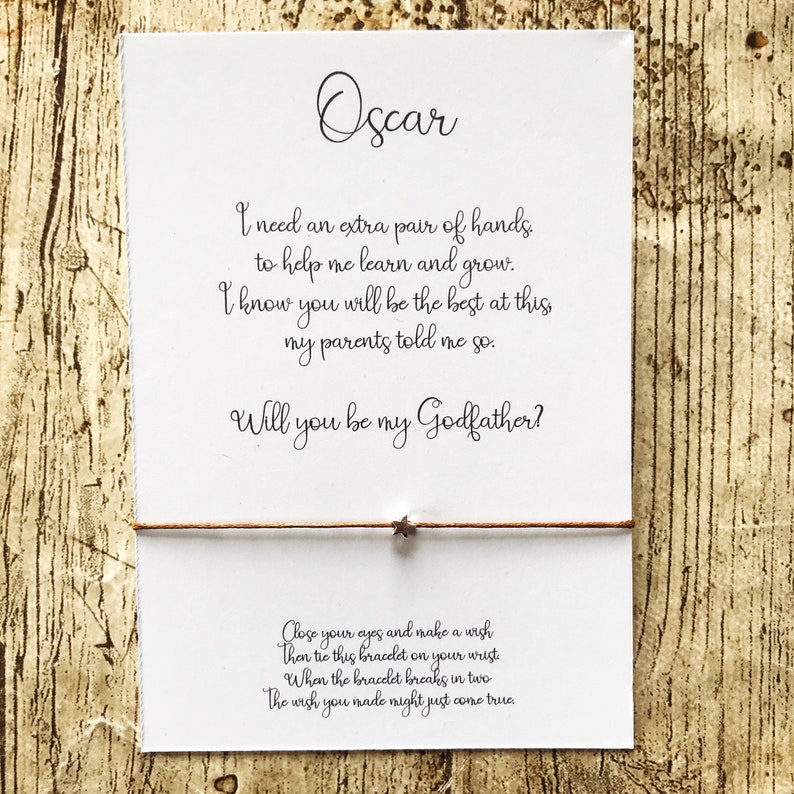 Oscar
I need an extra pair of hands.
to help me learn and grow.
I know you will be the best at this,
my parents told me so.
Will you be my Godfather?
Close your eyes and make a wish
Then tie this bracelet on your wrist.
When the bracelet breaks in two
The wish you made might just come true.